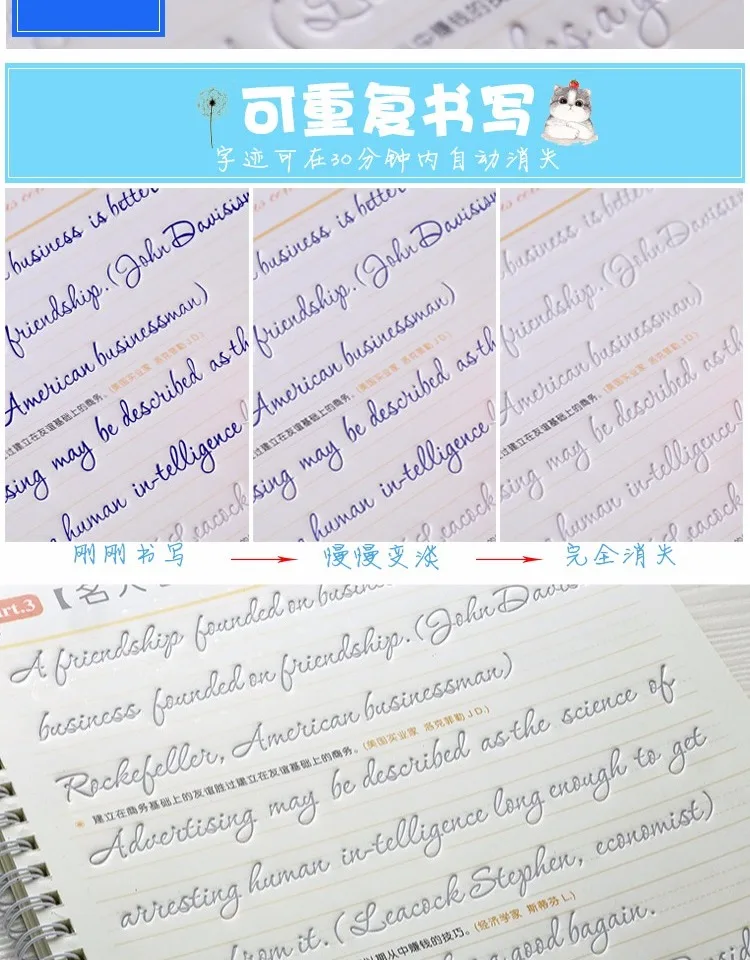 中赚钱的技
可重复书写
字迹可在30分钟内自动消失
business is better
friendship. (John Davisi
American businessman)
过建立在友谊基础上的商务。(美国实业家 洛克菲勒 J D.)
sing may be described as th
human in-telligence
Leacock
business is better
friendship. (John Davision
American businessman)
过建立在友谊基础上的商务。(美国实业家 洛克菲勒 J D.)
sing may be described as th
human in-telligence l
Leacock
business is bett
friendship. (John Davisi
American businessman)
过建立在友谊基础上的商务。(美国实业家 洛克菲勒 J D.)
sing may be described as th
human in-telligence l
Leacock
刚刚书写
慢慢变淡
完全消失
rt.3
【名人
A friendship founded on busin
business founded on friendship. (John Davis
Rockefeller, American businessman)
建立在商务基础上的友谊胜过建立在友谊基础上的商务。(美国实业家 洛克菲勒 J D.)
Advertising may be described as the science of
arresting human in-telligence long enough to get
from it. (Leacock Stephen, economist)
期从中赚钱的技巧。(经济学家 斯蒂芬 L.)
a good bagain.